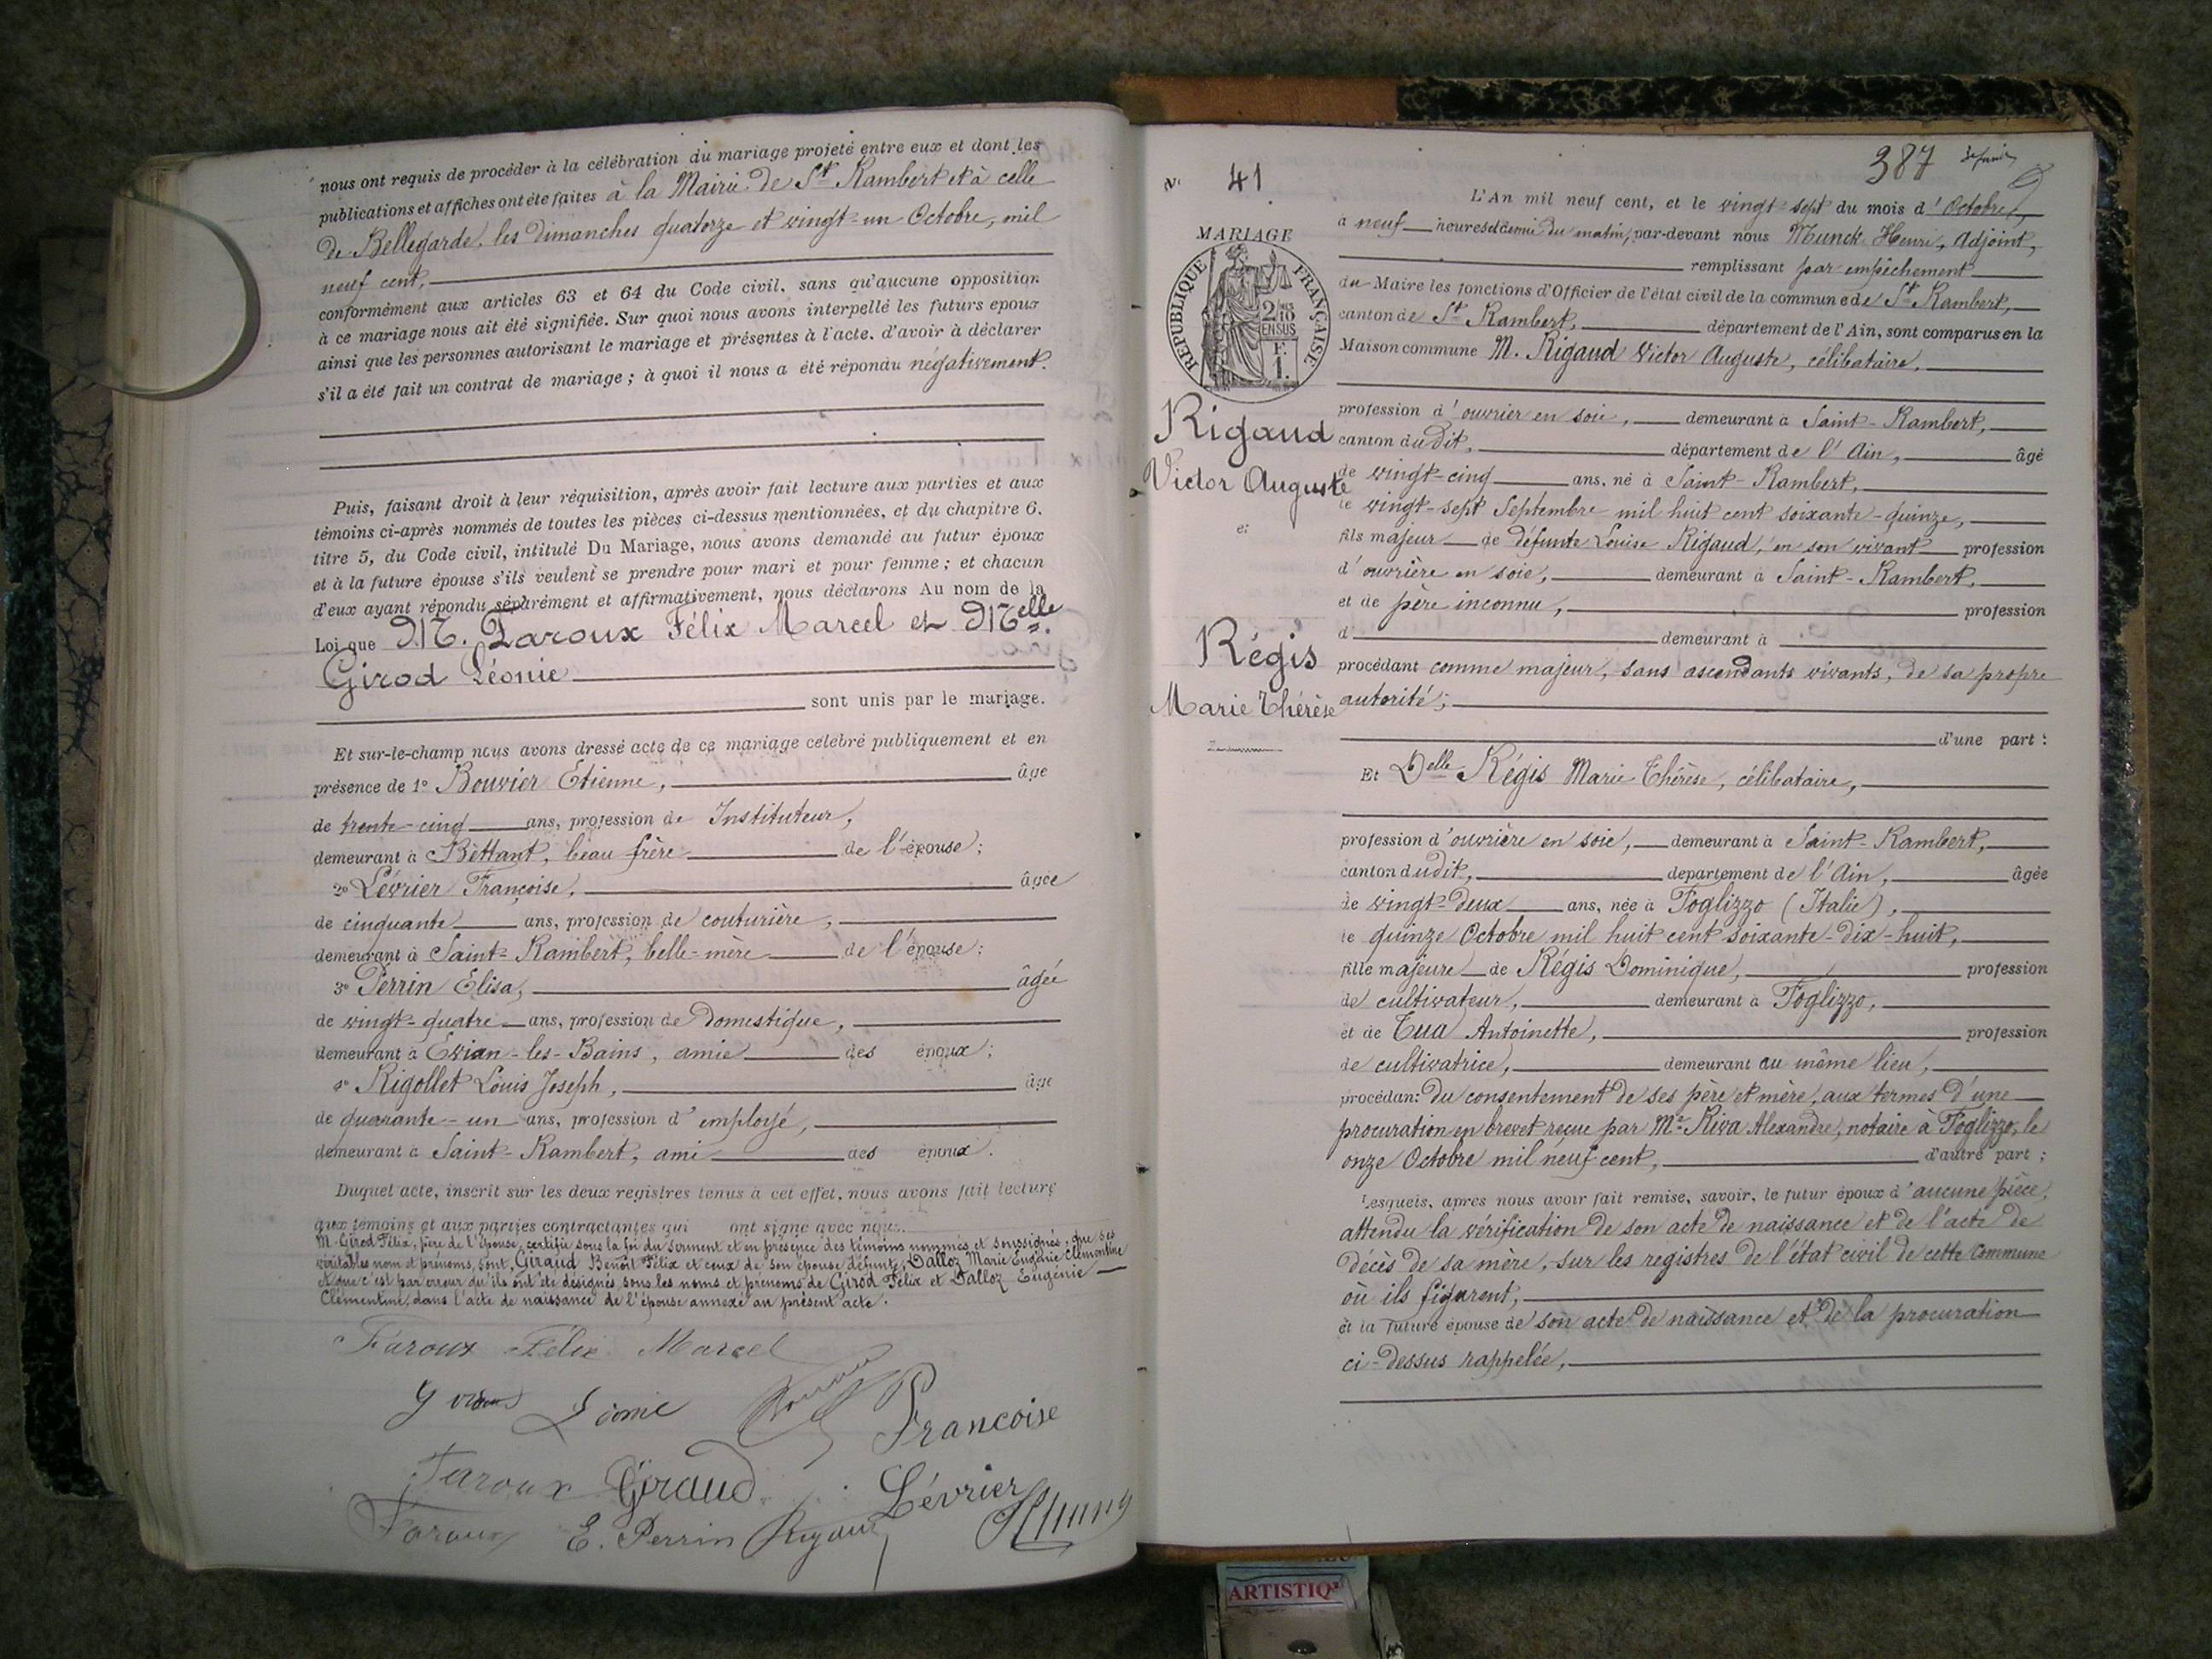 nous ont requis de procéder à la célébration du mariage projeté entre eux et dont les
publications et affiches ont été faites à la Mairie de St Rambert et à celle
de Bellegarde, les dimanches quatorze et vingt-un Octobre, mil
neuf cent,
conformément aux articles 63 et 64 du Code civil, sans qu'aucune opposition
à ce mariage nous ait été signifiée. Sur quoi nous avons interpellé les futurs époux
ainsi que les personnes autorisant le mariage et présentes à l'acte, d'avoir à déclarer
s'il a été fait un contrat de mariage ; à quoi il nous a été répondu négativement.
Puis, faisant droit à leur réquisition, après avoir fait lecture aux parties et aux
témoins ci-après nommés de toutes les pièces ci-dessus mentionnées, et du chapitre 6.
titre 5, du Code civil, intitulé Du Mariage, nous avons demandé au futur époux
et à la future épouse s'ils veulent se prendre pour mari et pour femme ; et chacun
d'eux ayant répondu séparément et affirmativement, nous déclarons Au nom de la
Loi que M. Faroux Félix Marcel et Melle
Girod Léonie
sont unis par le mariage.
Et sur-le-champ nous avons dressé acte de ce mariage célébré publiquement et en
présence de 1° Bouvier Etienne, âgé
de trente-cinq ans, profession de Instituteur,
demeurant à Bettant, beau frère de l'épouse ;
2° Lévrier Françoise, âgée
de cinquante ans, profession de couturière,
demeurant à Saint-Rambert, belle-mère de l'épouse ;
3° Perrin Elisa, âgée
de vingt-quatre ans, profession de domestique,
demeurant à Evian-les-Bains, amie des époux ;
4° Rigollet Louis Joseph, âgé
de quarante-un ans, profession d'employé,
demeurant à Saint-Rambert, ami des époux.
Duquel acte, inscrit sur les deux registres tenus à cet effet, nous avons fait lecture
aux témoins et aux parties contractantes qui ont signé avec nous.
M. Girod Félix, père de l'épouse, certifie sous la foi du serment et en présence des témoins nommés et soussignés, que ses
véritables nom et prénoms, sont, Giraud Benoît Félix et ceux de son épouse défunte, Dalloz Marie Eugénie Clémentine
et que c'est par erreur qu'ils ont été désignés sous les noms et prénoms de Girod Félix et Dalloz Eugénie
Clémentine, dans l'acte de naissance de l'épouse annexé au présent acte.
Faroux Félix Marcel
Léonie
Françoise
Faroux Giraud Lévrier
Faroux E. Perrin
387
N° 41
MARIAGE
RÉPUBLIQUE FRANÇAISE
2 10 MES EN SUS
F. 1.
Rigaud
Victor Auguste
et
Régis
Marie Thérèse
L'An mil neuf cent, et le vingt-sept du mois d'Octobre,
à neuf heures et demie du matin, par-devant nous Munck Henri, Adjoint,
remplissant par empêchement
du Maire les fonctions d'Officier de l'état civil de la commune de St Rambert,
canton de St Rambert, département de l'Ain, sont comparus en la
Maison commune M. Rigaud Victor Auguste, célibataire,
profession d'ouvrier en soie, demeurant à Saint-Rambert,
canton dudit, département de l'Ain, âgé
de vingt-cinq ans, né à Saint-Rambert,
le vingt-sept Septembre mil huit cent soixante-quinze,
fils majeur de défunte Louise Rigaud, en son vivant profession
d'ouvrière en soie, demeurant à Saint-Rambert,
et de père inconnu, profession
d demeurant à
procédant comme majeur, sans ascendants vivants, de sa propre
autorité ;
d'une part :
Et Delle Régis Marie-Thérèse, célibataire,
profession d'ouvrière en soie, demeurant à Saint-Rambert,
canton dudit, département de l'Ain, âgée
de vingt-deux ans, née à Foglizzo (Italie),
le quinze Octobre mil huit cent soixante-dix-huit,
fille majeure de Régis Dominique, profession
de cultivateur, demeurant à Foglizzo,
et de Tua Antoinette, profession
de cultivatrice, demeurant au même lieu,
procédant du consentement de ses père et mère, aux termes d'une
procuration en brevet reçue par Me Riva Alexandre, notaire à Foglizzo, le
onze Octobre mil neuf cent, d'autre part ;
Lesquels, après nous avoir fait remise, savoir, le futur époux d'aucune pièce,
attendu la vérification de son acte de naissance et de l'acte de
décès de sa mère, sur les registres de l'état civil de cette Commune
où ils figurent,
et la future épouse de son acte de naissance et de la procuration
ci-dessus rappelée,
ARTISTIQ